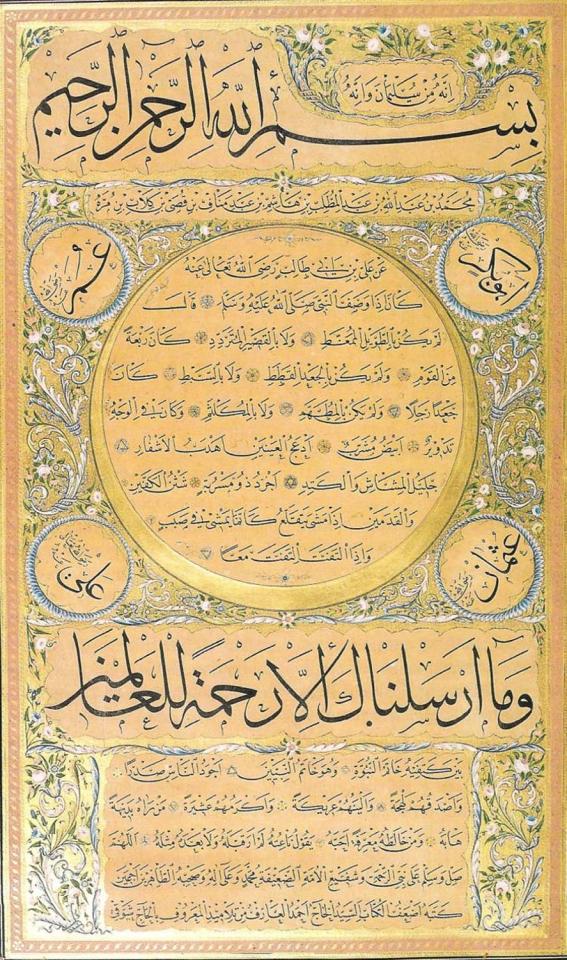 انه من سليمان وانه
بسم الله الرحمن الرحيم
محمد بن عبد الله بن عبد المطلب بن هاشم بن عبد مناف بن قصي بن كلاب بن مرة
ابو بكر
عمر
عن علي بن ابي طالب رضى الله تعالى عنه
كان اذا وصف النبي صلى الله عليه وسلم قال
لم يكن بالطويل الممغط ولا بالقصير المتردد كان ربعة
من القوم ولم يكن بالجعد القطط ولا بالسبط كان
جعدا رجلا ولم يكن بالمطهم ولا بالمكلثم وكان في الوجه
تدوير ابيض مشرب ادعج العينين اهدب الاشفار
جليل المشاش والكتد اجرد ذو مسربة شثن الكفين
والقدمين اذا مشى يتقلع كانما يمشي في صبب
واذا التفت التفت معا
عثمان
علي
وما ارسلناك الا رحمة للعالمين
بين كتفيه خاتم النبوة وهو خاتم النبيين اجود الناس صدرا
واصدقهم لهجة والينهم عريكة واكرمهم عشيرة من راه بديهة
هابه ومن خالطه معرفة احبه يقول ناعته لم ار قبله ولا بعده مثله اللهم
صل وسلم على نبي الرحمة وشفيع الامة محمد وعلى اله وصحبه الطاهرين اجمعين
كتبه اضعف الكتاب السيد الحاج احمد العارف من تلاميذ المعروف بالحاج شوقي